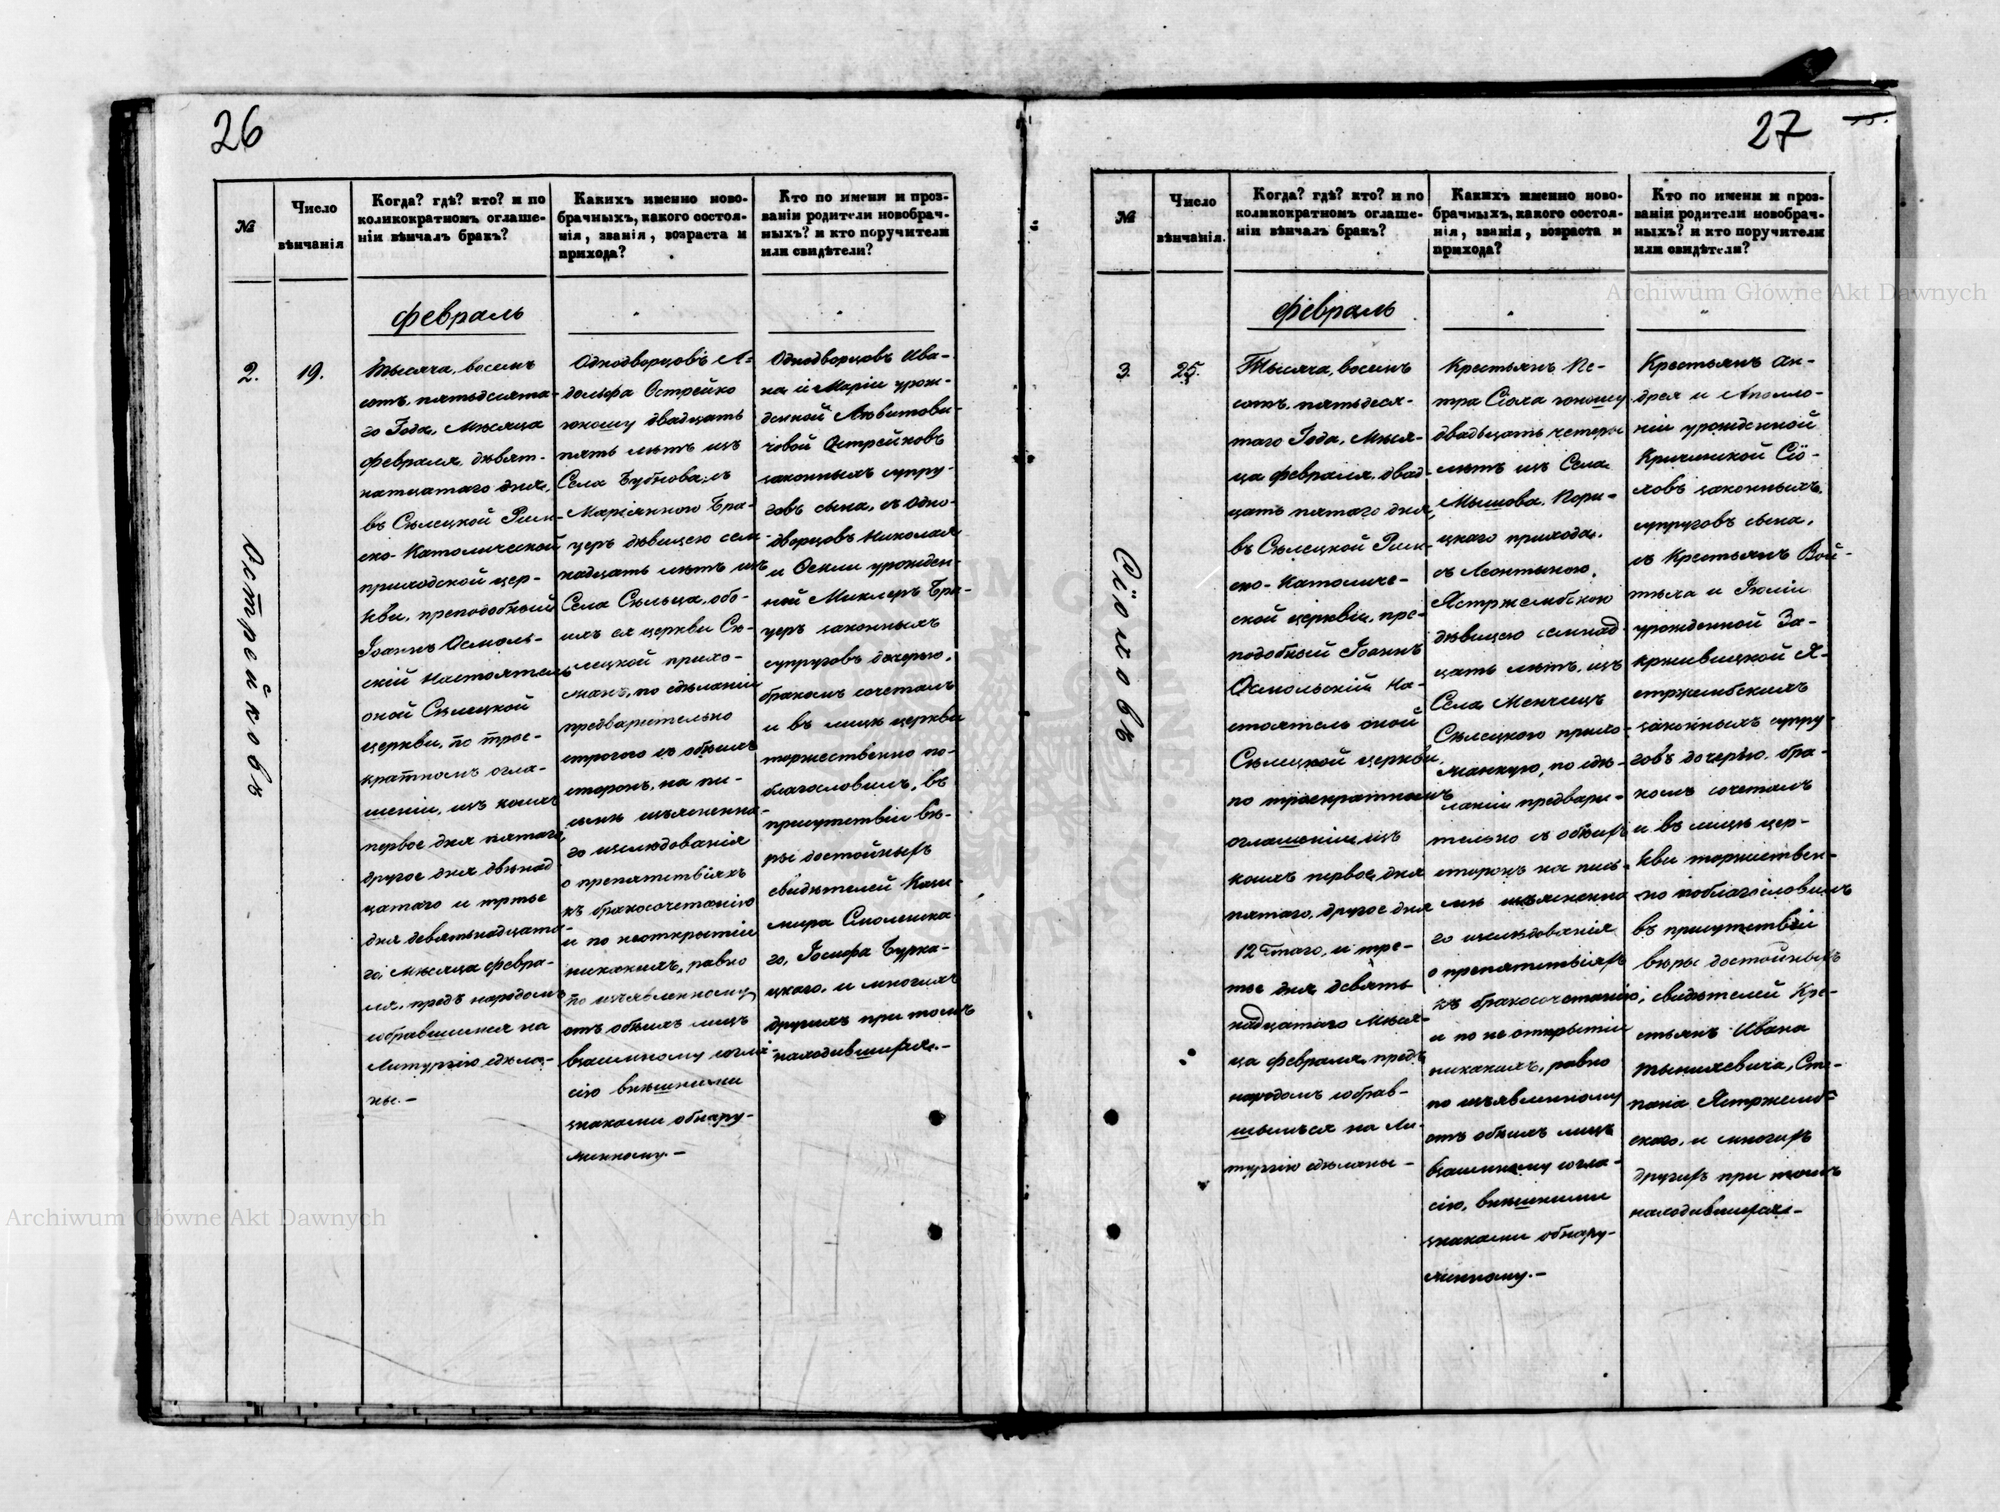 26
№
Число
вѣнчанія
Когда? гдѣ? кто? и по
коликократномъ оглаше-
ніи вѣнчалъ бракъ?
Какихъ именно ново-
брачныхъ, какого состоя-
нія, званія, возраста и
прихода?
Кто по имени и проз-
ваніи родители новобрач-
ныхъ? и кто поручители
или свидѣтели?
февраль
2.
19.
Острейковъ
Тысяча, восемь
сотъ, пятьдесята-
го Года, Мѣсяца
февраля, девят-
надцатаго дня,
въ Сѣлецкой Рим-
ско-Католической
приходской цер-
кви, преподобный
Іоаннъ Осмоль-
скій Настоятель
оной Сѣлецкой
церкви, по трое-
кратномъ огла-
шеніи, изъ коихъ
первое дня пятаго,
другое дня двѣнад
цатаго и третье
дня девятьнадцата-
го, Мѣсяца февра-
ля, предъ народомъ
собравшимся на
Литургію сдѣла-
ны.-
Однодворцовъ А-
дольфа Острейко
юношу двадцать
пять лѣтъ изъ
Села Бубнова, съ
Маріянною Бра-
церъ дѣвицею сем-
надцать лѣтъ изъ
Села Сѣльца, обо-
ихъ ея церкви Сѣ-
лецкой прихо-
жанъ, по сдѣланіи
предварительно
строгого съ обѣихъ
сторонъ, на пи-
сьмѣ изъясненна-
го изслѣдованія
о препятствіяхъ
къ бракосочетанію
и по неоткрытіи
никакихъ, равно
по изъявленному
отъ обѣихъ лицъ
взаимному согла-
сію внѣшними
знаками обнару-
женному.-
Однодворцовъ Ива-
на и Маріи урож-
денной Любитови-
човой Острейковъ
законныхъ супру-
говъ сына, съ Одно-
дворцовъ Николая
и Фекли урожден-
ной Миклеръ Бра-
церъ законныхъ
супруговъ дочерью,
бракомъ сочеталъ
и въ лицѣ церкви
торжественно по-
благословилъ, въ
присутствіи вѣ-
ры достойныхъ
свидѣтелей Кази-
мира Смоленска-
го, Іосифа Бурка-
цкаго, и многихъ
другихъ при томъ
находившихся.-
27
№
Число
вѣнчанія.
Когда? гдѣ? кто? и по
коликократномъ оглаше-
ніи вѣнчалъ бракъ?
Какихъ именно ново-
брачныхъ, какого состоя-
нія, званія, возраста и
прихода?
Кто по имени и проз-
ваніи родители новобрач-
ныхъ? и кто поручители
или свидѣтели?
февраль
3.
25.
Сіоховъ
Тысяча, восемь
сотъ, пятьдеся-
таго Года, Мѣся-
ца февраля, двад-
цать пятаго дня,
въ Сѣлецкой Рим-
ско-Католиче-
ской церкви, пре-
подобный Іоаннъ
Осмольскій На-
стоятель оной
Сѣлецкой церкви,
по троекратномъ
оглашеніи, изъ
коихъ первое дня
пятаго, другое дня
12-таго, и тре-
тье дня девять
надцатаго Мѣся-
ца февраля, предъ
народомъ собрав-
шымъся на Ли-
тургію сдѣланы-
Крестьянъ Пе-
тра Сіоха юношу
двадьцать четыре
лѣтъ изъ Села
Мышова, Пори-
цкаго прихода,
съ Леонтыною,
Ястржембскою
дѣвицею семнад
цать лѣтъ, изъ
Села Менчицъ
Сѣлецкого прихо-
жанкую, по сдѣ-
ланіи предвари-
тельно съ обѣихъ
сторонъ на пись-
мѣ изъясненна
го изслѣдованія
о препятствіяхъ
къ бракосочетанію,
и по не открытіи
никакихъ, равно
по изъявленному
отъ обѣихъ лицъ
взаимному согла-
сію, внѣшними
знаками обнару-
женному.-
Крестьянъ Ан-
дрея и Аполло-
ніи урожденной
Кричинской Сіо-
ховъ законныхъ
супруговъ сына,
съ Крестьянъ Вой-
тѣха и Юліи
урожденной За-
крживицкой Я-
стржембскихъ
законныхъ супру-
говъ дочерью, бра-
комъ сочеталъ
и въ лицѣ цер-
кви торжествен-
но поблагословилъ
въ присутствіи
вѣры достойныхъ
свидѣтелей Кре-
стьянъ Ивана
Тынкевича, Сте-
пана Ястржемб-
скаго, и многихъ
другихъ при томъ
находившихся-
Archiwum Główne Akt Dawnych
Archiwum Główne Akt Dawnych